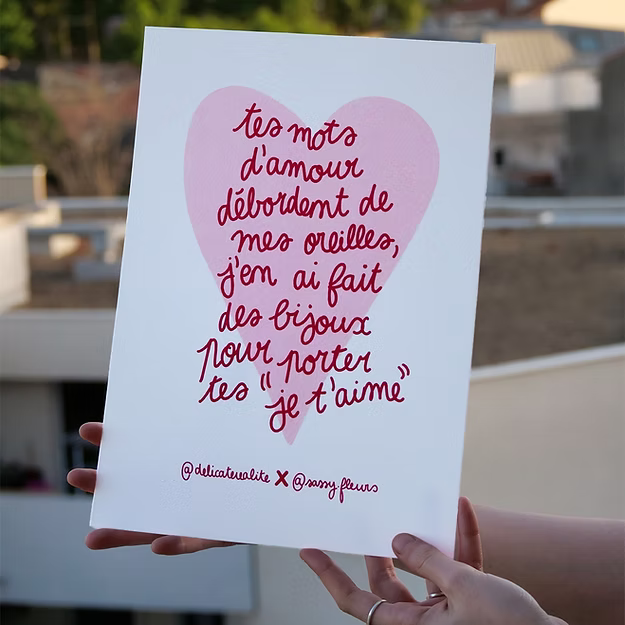 tes mots
d'amour
débordent de
mes oreilles,
j'en ai fait
des bijoux
pour porter
tes "je t'aime"
@delicaterealite X @sassy.fleurs